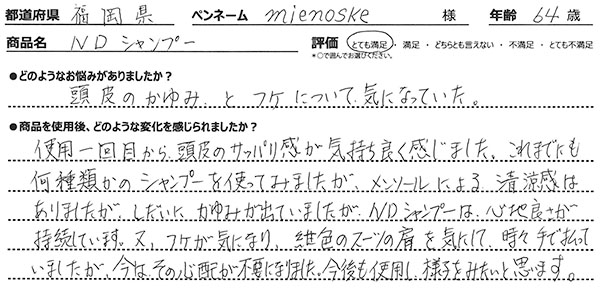 都道府県 福岡県 ペンネーム mienoske 様 年齢 64 歳
商品名 NDシャンプー 評価 とても満足・満足・どちらとも言えない・不満足・とても不満足
*○で選んでお選びください。
●どのようなお悩みがありましたか?
頭皮のかゆみ と フケについて、気になっていた。
●商品を使用後、どのような変化を感じられましたか?
使用一回目から、頭皮のサッパリ感が気持ち良く感じました。これまでにも
何種類かのシャンプーを使ってみましたが、メンソールによる清涼感は
ありましたが、しだいにかゆみが出ていましたが、NDシャンプーは、心地良さが
持続しています。又、フケが気になり、紺色のスーツの肩を気にして、時々手で払って
いましたが、今はその心配が不要になりました。今後も使用し、様子をみたいと思います。